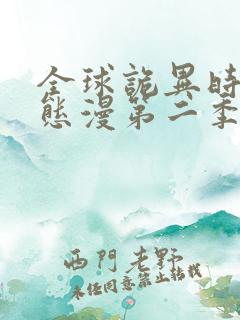 全球詭異時
態漫第二季
西門老野
未经同意禁止转载